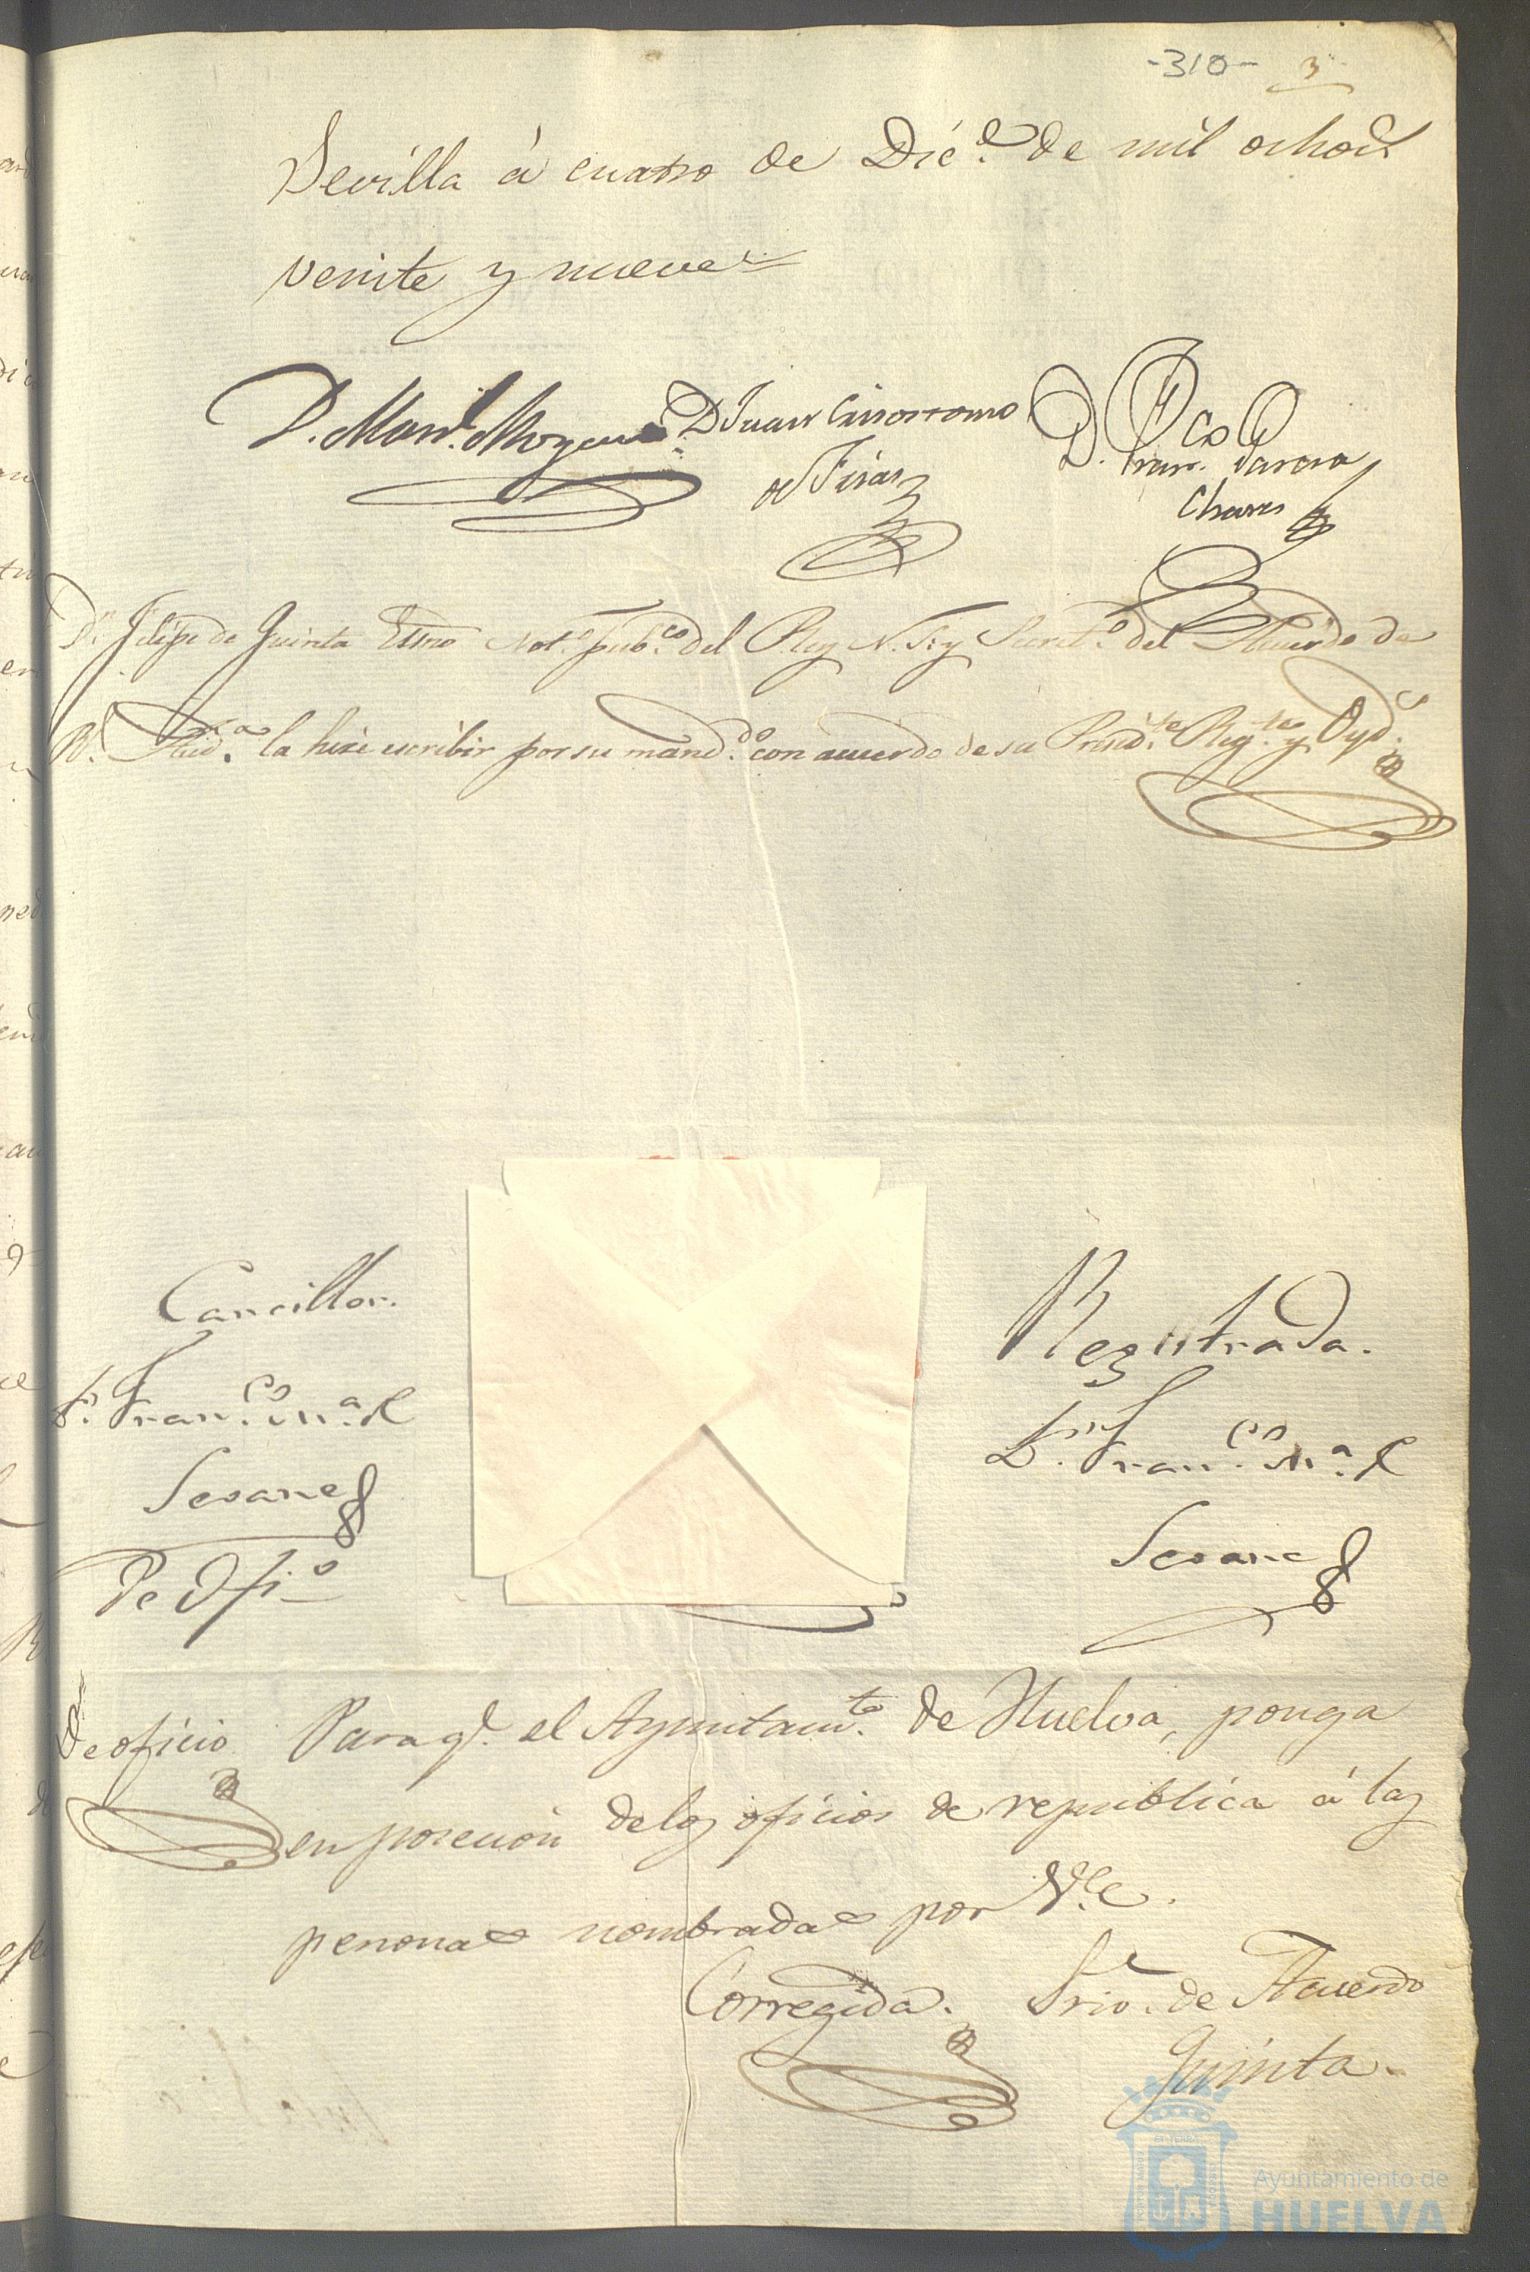 -310- 3
Sevilla á cuatro de Dic.e de mil ochoc.s
veinte y nueve
D. Man.l D. Juan Crisostomo D. Fran.co Garcia
de Chaves
D.n Felipe de Quinta Essno Not.o pub.co del Rey N. S. y Secret.o del Acuerdo de
R. Aud.a la hize escribir por su mand.do con acuerdo de su Presid.te Reg.te y Oyd.s
Canciller. Registrada.
D.n Fran.co M.a D.n Fran.co M.a
Seoane Seoane
De Ofi.o
De oficio Para q.e el Ayuntam.to de Huelva, ponga
en posecion de los oficios de republica á las
personas nombradas por V.E.
Corregida. Srio. de Acuerdo
Quinta.
Ayuntamiento de
HUELVA